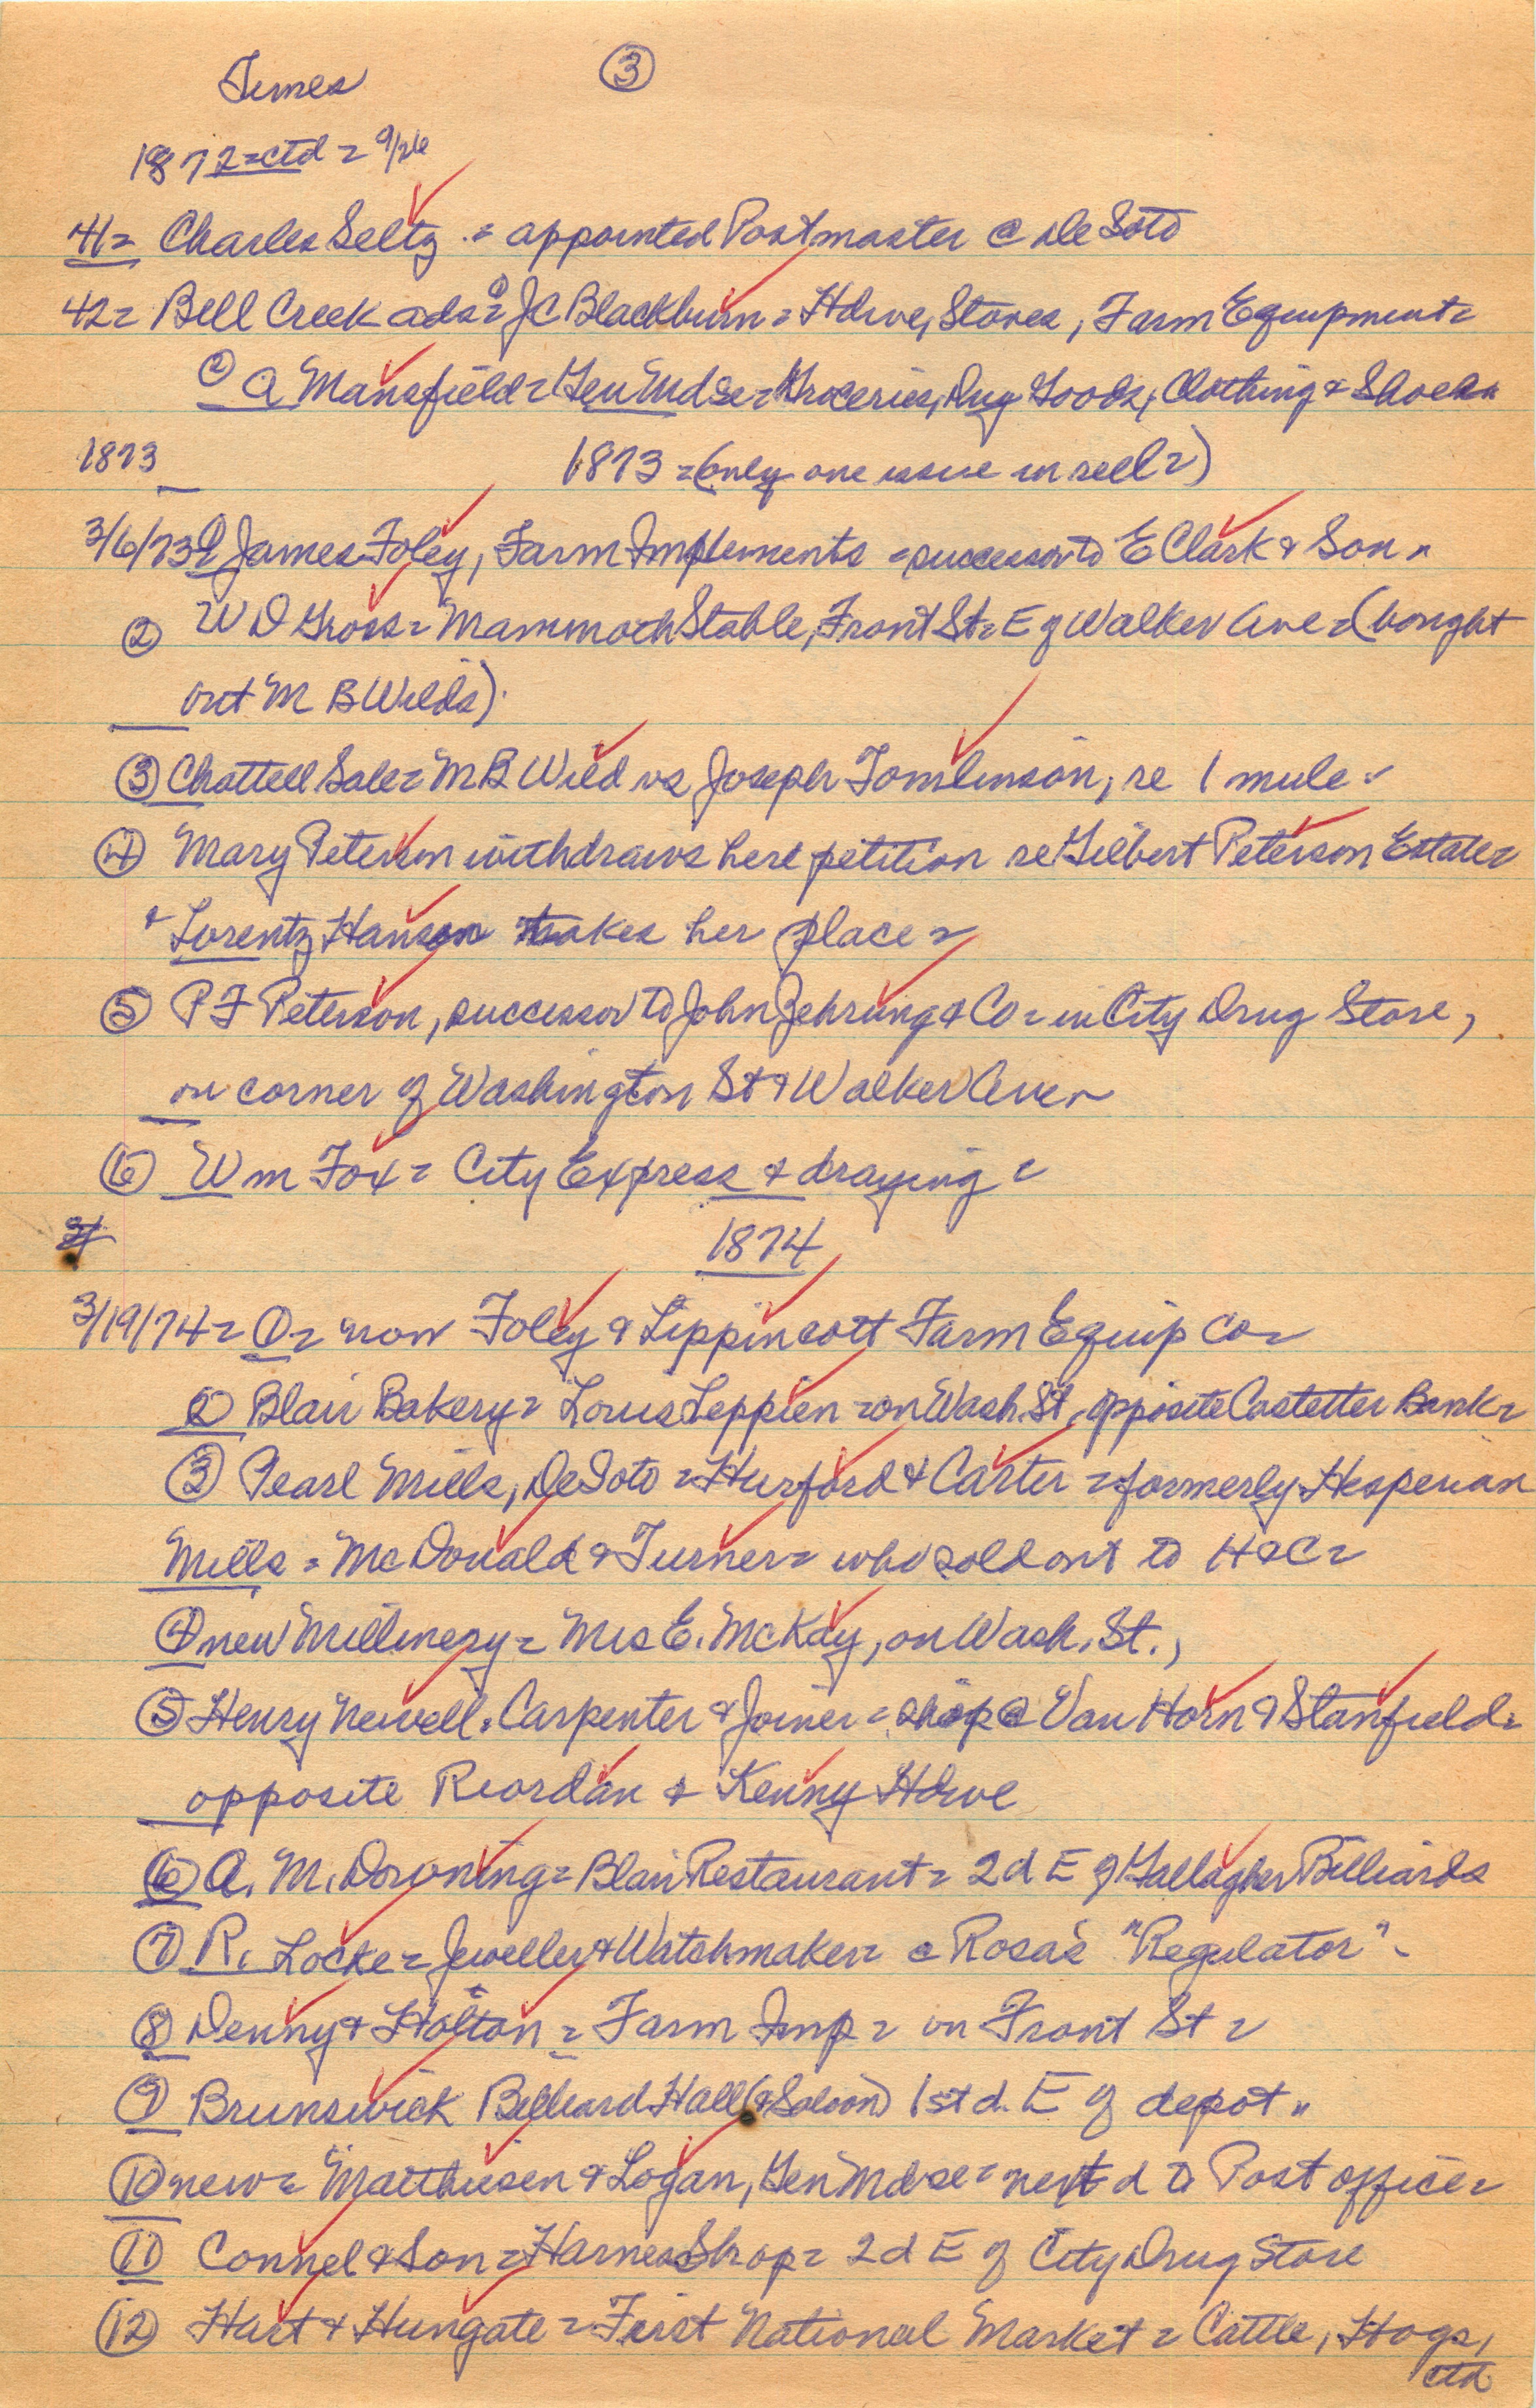 Times ③
1872=ctd= 9/26
41= Charles Seltz = appointed Postmaster @ De Soto
42= Bell Creek ads= ① JC Blackburn = Hdwe, Stoves, Farm Equipment=
② A Mansfield= Gen Mdse= Groceries, Dry Goods, Clothing & Shoes=
1873 1873 =(only one issue in reel=)
3/6/73= ① James Foley, Farm Implements = successor to E Clark & Son =
② W D Gross= Mammoth Stable, Front St= E of Walker Ave = (bought
out M B Wilds).
③ Chattell Sale= M B Wild vs Joseph Tomlinson, re 1 mule=
④ Mary Peterson withdraws here petition re Gilbert Peterson Estate=
& Lorentz Hanson takes her place=
⑤ P F Peterson, successor to John Zehrung & Co = in City Drug Store,
on corner of Washington St & Walker Ave=
⑥ Wm Fox = City Express & draying =
1874
3/19/74= ①= now Foley & Lippincott Farm Equip Co=
② Blair Bakery= Louis Leppien =on Wash. St, opposite Castetter Bank=
③ Pearl Mills, DeSoto =Hurford & Carter =formerly Hesperian
Mills = McDonald & Turner= who sold out to H&C=
④ new Millinery= Mrs E. McKay, on Wash. St.,
⑤ Henry Newell, Carpenter & Joiner = shop @ Van Horn & Stanfield=
opposite Riordan & Kenny Hdwe
⑥ A. M. Downing= Blair Restaurant= 2d E of Gallagher Billiards
⑦ R. Locke = Jeweller & Watchmaker= @ Rosa's "Regulator"-
⑧ Denny & Holton = Farm Imp= on Front St=
⑨ Brunswick Billiard Hall (& Saloon) 1st d. E of depot=
⑩ new= Matthiesen & Logan, Gen Mdse= next d to Post office=
⑪ Connel & Son= Harness Shop= 2d E of City Drug Store
⑫ Hart & Hungate = First National Market = Cattle, Hogs,
ctd